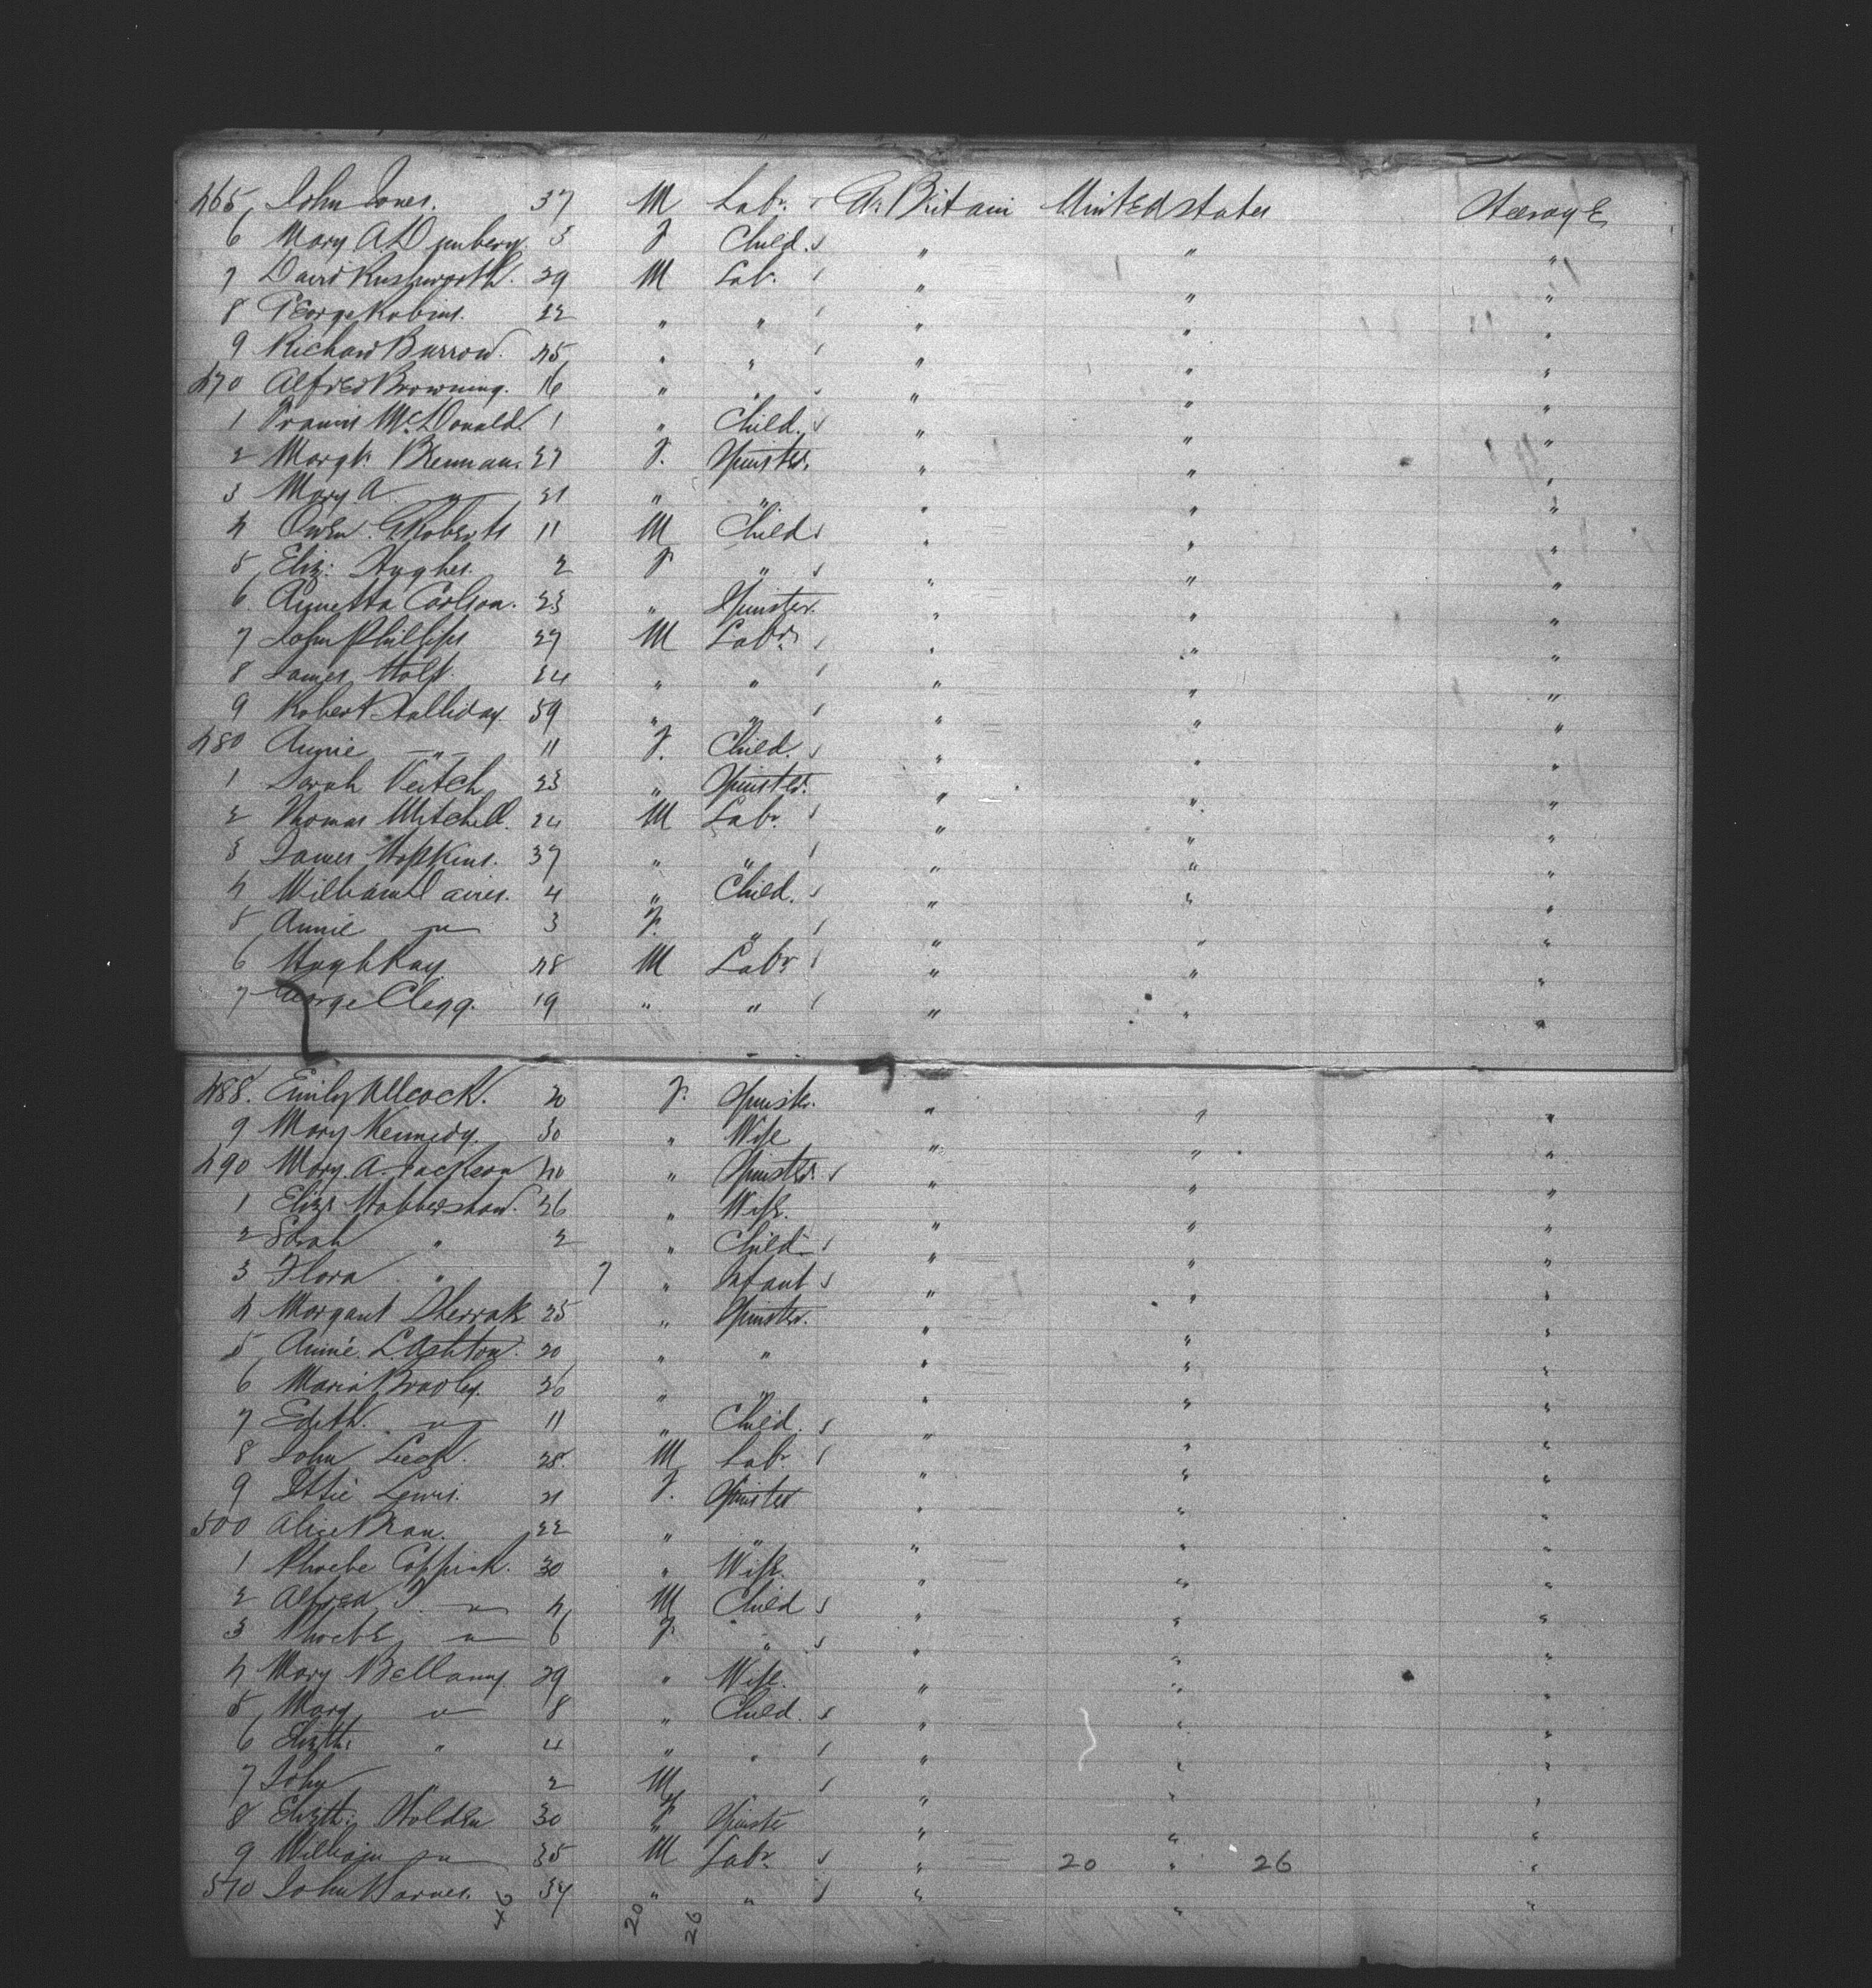 465 John Jones. 37 M Labr. Gt. Britain United States Steerage
6 Mary A 3 F Child. " " "
7 David Rushworth. 29 M Lab. " " "
8 George Robins. 22 " " " " "
9 Richard Burrow. 45 " " " " "
470 Alfred Browning. 16 " " " " "
1 Francis McDonald. 1 " Child. " " "
2 Margt. Brennan. 27 F. Spinster. " " "
3 Mary A " 21 " " " " "
4 Owen G Roberts 11 M Child " " "
5 Eliz: Hughes. 2 F " " " "
6 Annetta Carlson. 23 " Spinster. " " "
7 John Phillips 27 M Labr. " " "
8 James 24 " " " " "
9 Robert Halliday 59 " " " " "
480 Annie " 11 F. Child. " " "
1 Sarah Veitch 23 " Spinster. " " "
2 Thomas Mitchell. 24 M Labr. " " "
3 James Hopkins. 37 " " " " "
4 William Davies. 4 " Child. " " "
5 Annie " 3 F. " " " "
6 Hugh Kay 48 M Labr " " "
7 George Clegg. 19 " " " " "
488. Emily Allcock. 20 F. Spinster. " " "
9 Mary Kennedy. 30 " Wife " " "
490 Mary A. Jackson 40 " Spinster " " "
1 Eliz: Habbershaw. 26 " Wife. " " "
2 Sarah " 2 " Child " " "
3 Flora " 7 " Infant " " "
4 Margaret 25 " Spinster. " " "
5 Annie L Ashton. 20 " " " " "
6 Maria Bradley. 36 " " " " "
7 Edith. " 11 " Child. " " "
8 John Leck. 28. M Labr " " "
9 Ettie Lewis. 21 F. Spinster " " "
500 Alice 22 " " " " "
1 Phoebe Coppick. 30 " Wife. " " "
2 Alfred J. " 4 M Child " " "
3 Phoebe " 6 F. " " " "
4 Mary Bellamy 29 " Wife. " " "
5 Mary " 8 " Child. " " "
6 Elizth: " 4 " " " " "
7 John " 2 M " " " "
8 Elizth: Holden 30 F Spinster " " "
9 William " 35 M Labr. " 20 " 26 "
510 John Barnes. 34 " " " " "
46 20 26